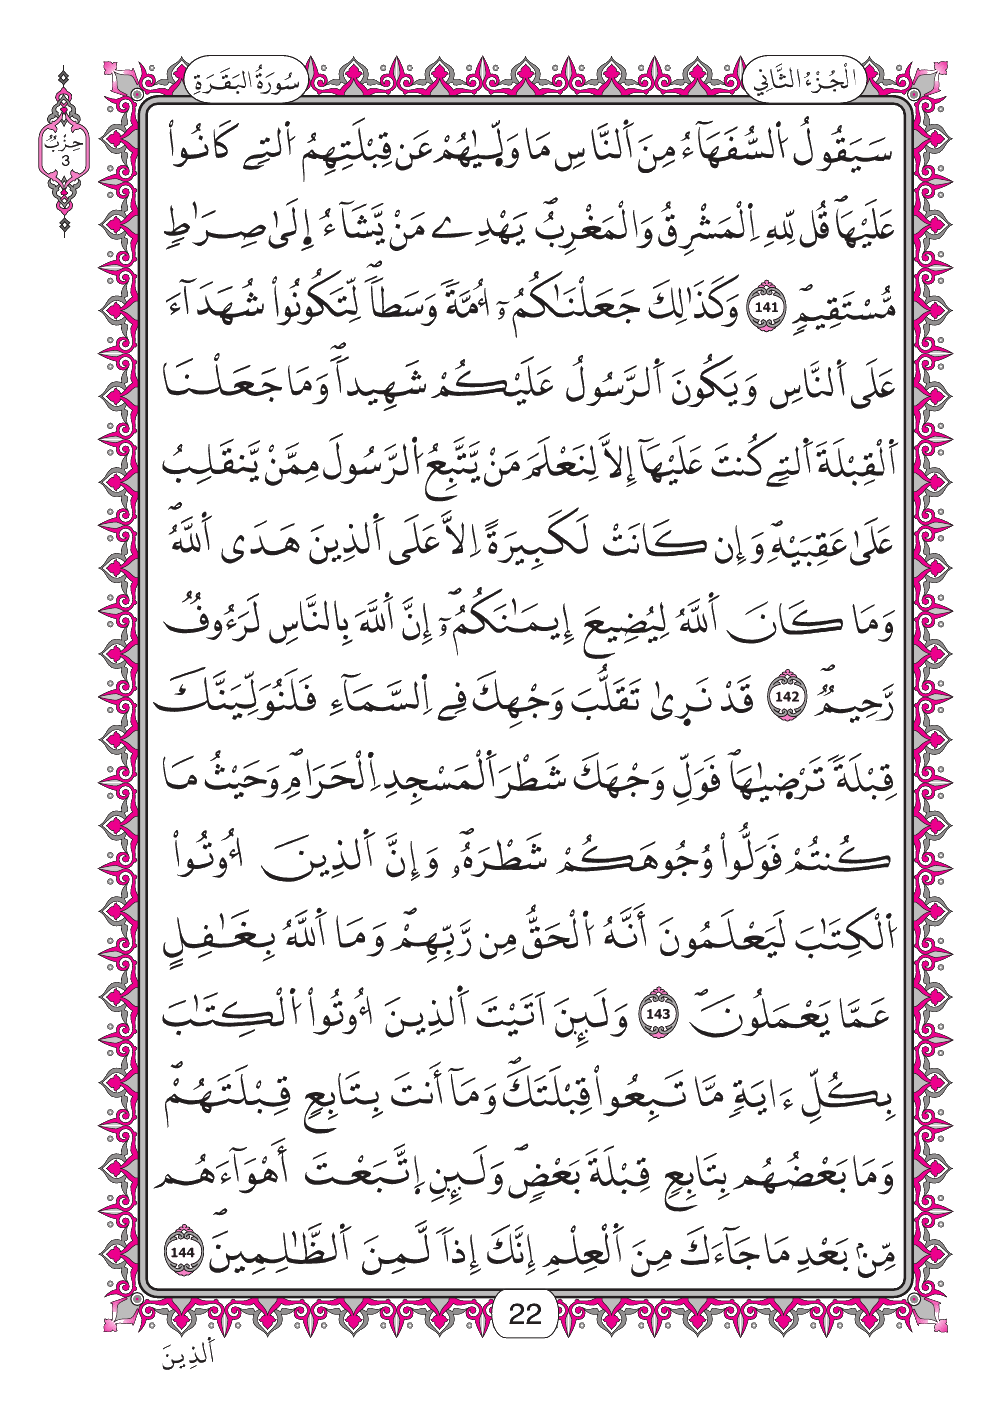 سُورَةُ الْبَقَرَةِ
الْجُزْءُ الثَّانِي
حِزْبٌ
3
سَيَقُولُ اُ۬لسُّفَهَآءُ مِنَ اَ۬لنَّاسِ مَا وَلّ۪يٰهُمْ عَن قِبْلَتِهِمُ اُ۬لتِے كَانُواْ
عَلَيْهَاۖ قُل لِّلهِ اِ۬لْمَشْرِقُ وَالْمَغْرِبُۖ يَهْدِے مَنْ يَّشَآءُ اِ۪لَىٰ صِرَٰطٖ
مُّسْتَقِيمٖۖ 141 وَكَذَٰلِكَ جَعَلْنَٰكُمُۥٓ أُمَّةٗ وَسَطاٗۖ لِّتَكُونُواْ شُهَدَآءَ
عَلَى اَ۬لنَّاسِ وَيَكُونَ اَ۬لرَّسُولُ عَلَيْكُمْ شَهِيداٗۖ وَمَا جَعَلْنَا
اَ۬لْقِبْلَةَ اَ۬لتِے كُنتَ عَلَيْهَآ إِلاَّ لِنَعْلَمَ مَنْ يَّتَّبِعُ اُ۬لرَّسُولَ مِمَّنْ يَّنقَلِبُ
عَلَىٰ عَقِبَيْهِۖ وَإِن كَانَتْ لَكَبِيرَةً اِلاَّ عَلَى اَ۬لذِينَ هَدَى اَ۬للَّهُۖ
وَمَا كَانَ اَ۬للَّهُ لِيُضِيعَ إِيمَٰنَكُمُۥٓۖ إِنَّ اَ۬للَّهَ بِالنَّاسِ لَرَءُوفٞ
رَّحِيمٞۖ 142 قَدْ نَر۪ىٰ تَقَلُّبَ وَجْهِكَ فِے اِ۬لسَّمَآءِ فَلَنُوَلِّيَنَّكَ
قِبْلَةٗ تَرْض۪يٰهَاۖ فَوَلِّ وَجْهَكَ شَطْرَ اَ۬لْمَسْجِدِ اِ۬لْحَرَامِۖ وَحَيْثُ مَا
كُنتُمْ فَوَلُّواْ وُجُوهَكُمْ شَطْرَهُۥۖ وَإِنَّ اَ۬لذِينَ أُوتُواْ
اُ۬لْكِتَٰبَ لَيَعْلَمُونَ أَنَّهُ اُ۬لْحَقُّ مِن رَّبِّهِمْۖ وَمَا اَ۬للَّهُ بِغَٰفِلٍ
عَمَّا يَعْمَلُونَۖ 143 وَلَئِنَ اَتَيْتَ اَ۬لذِينَ أُوتُواْ اُ۬لْكِتَٰبَ
بِكُلِّ ءَايَةٖ مَّا تَبِعُواْ قِبْلَتَكَۖ وَمَآ أَنتَ بِتَابِعٖ قِبْلَتَهُمْۖ
وَمَا بَعْضُهُم بِتَابِعٖ قِبْلَةَ بَعْضٖۖ وَلَئِنِ اِ۪تَّبَعْتَ أَهْوَآءَهُم
مِّنۢ بَعْدِ مَا جَآءَكَ مِنَ اَ۬لْعِلْمِ إِنَّكَ إِذاٗ لَّمِنَ اَ۬لظَّٰلِمِينَۖ 144
22
اَ۬لذِينَ